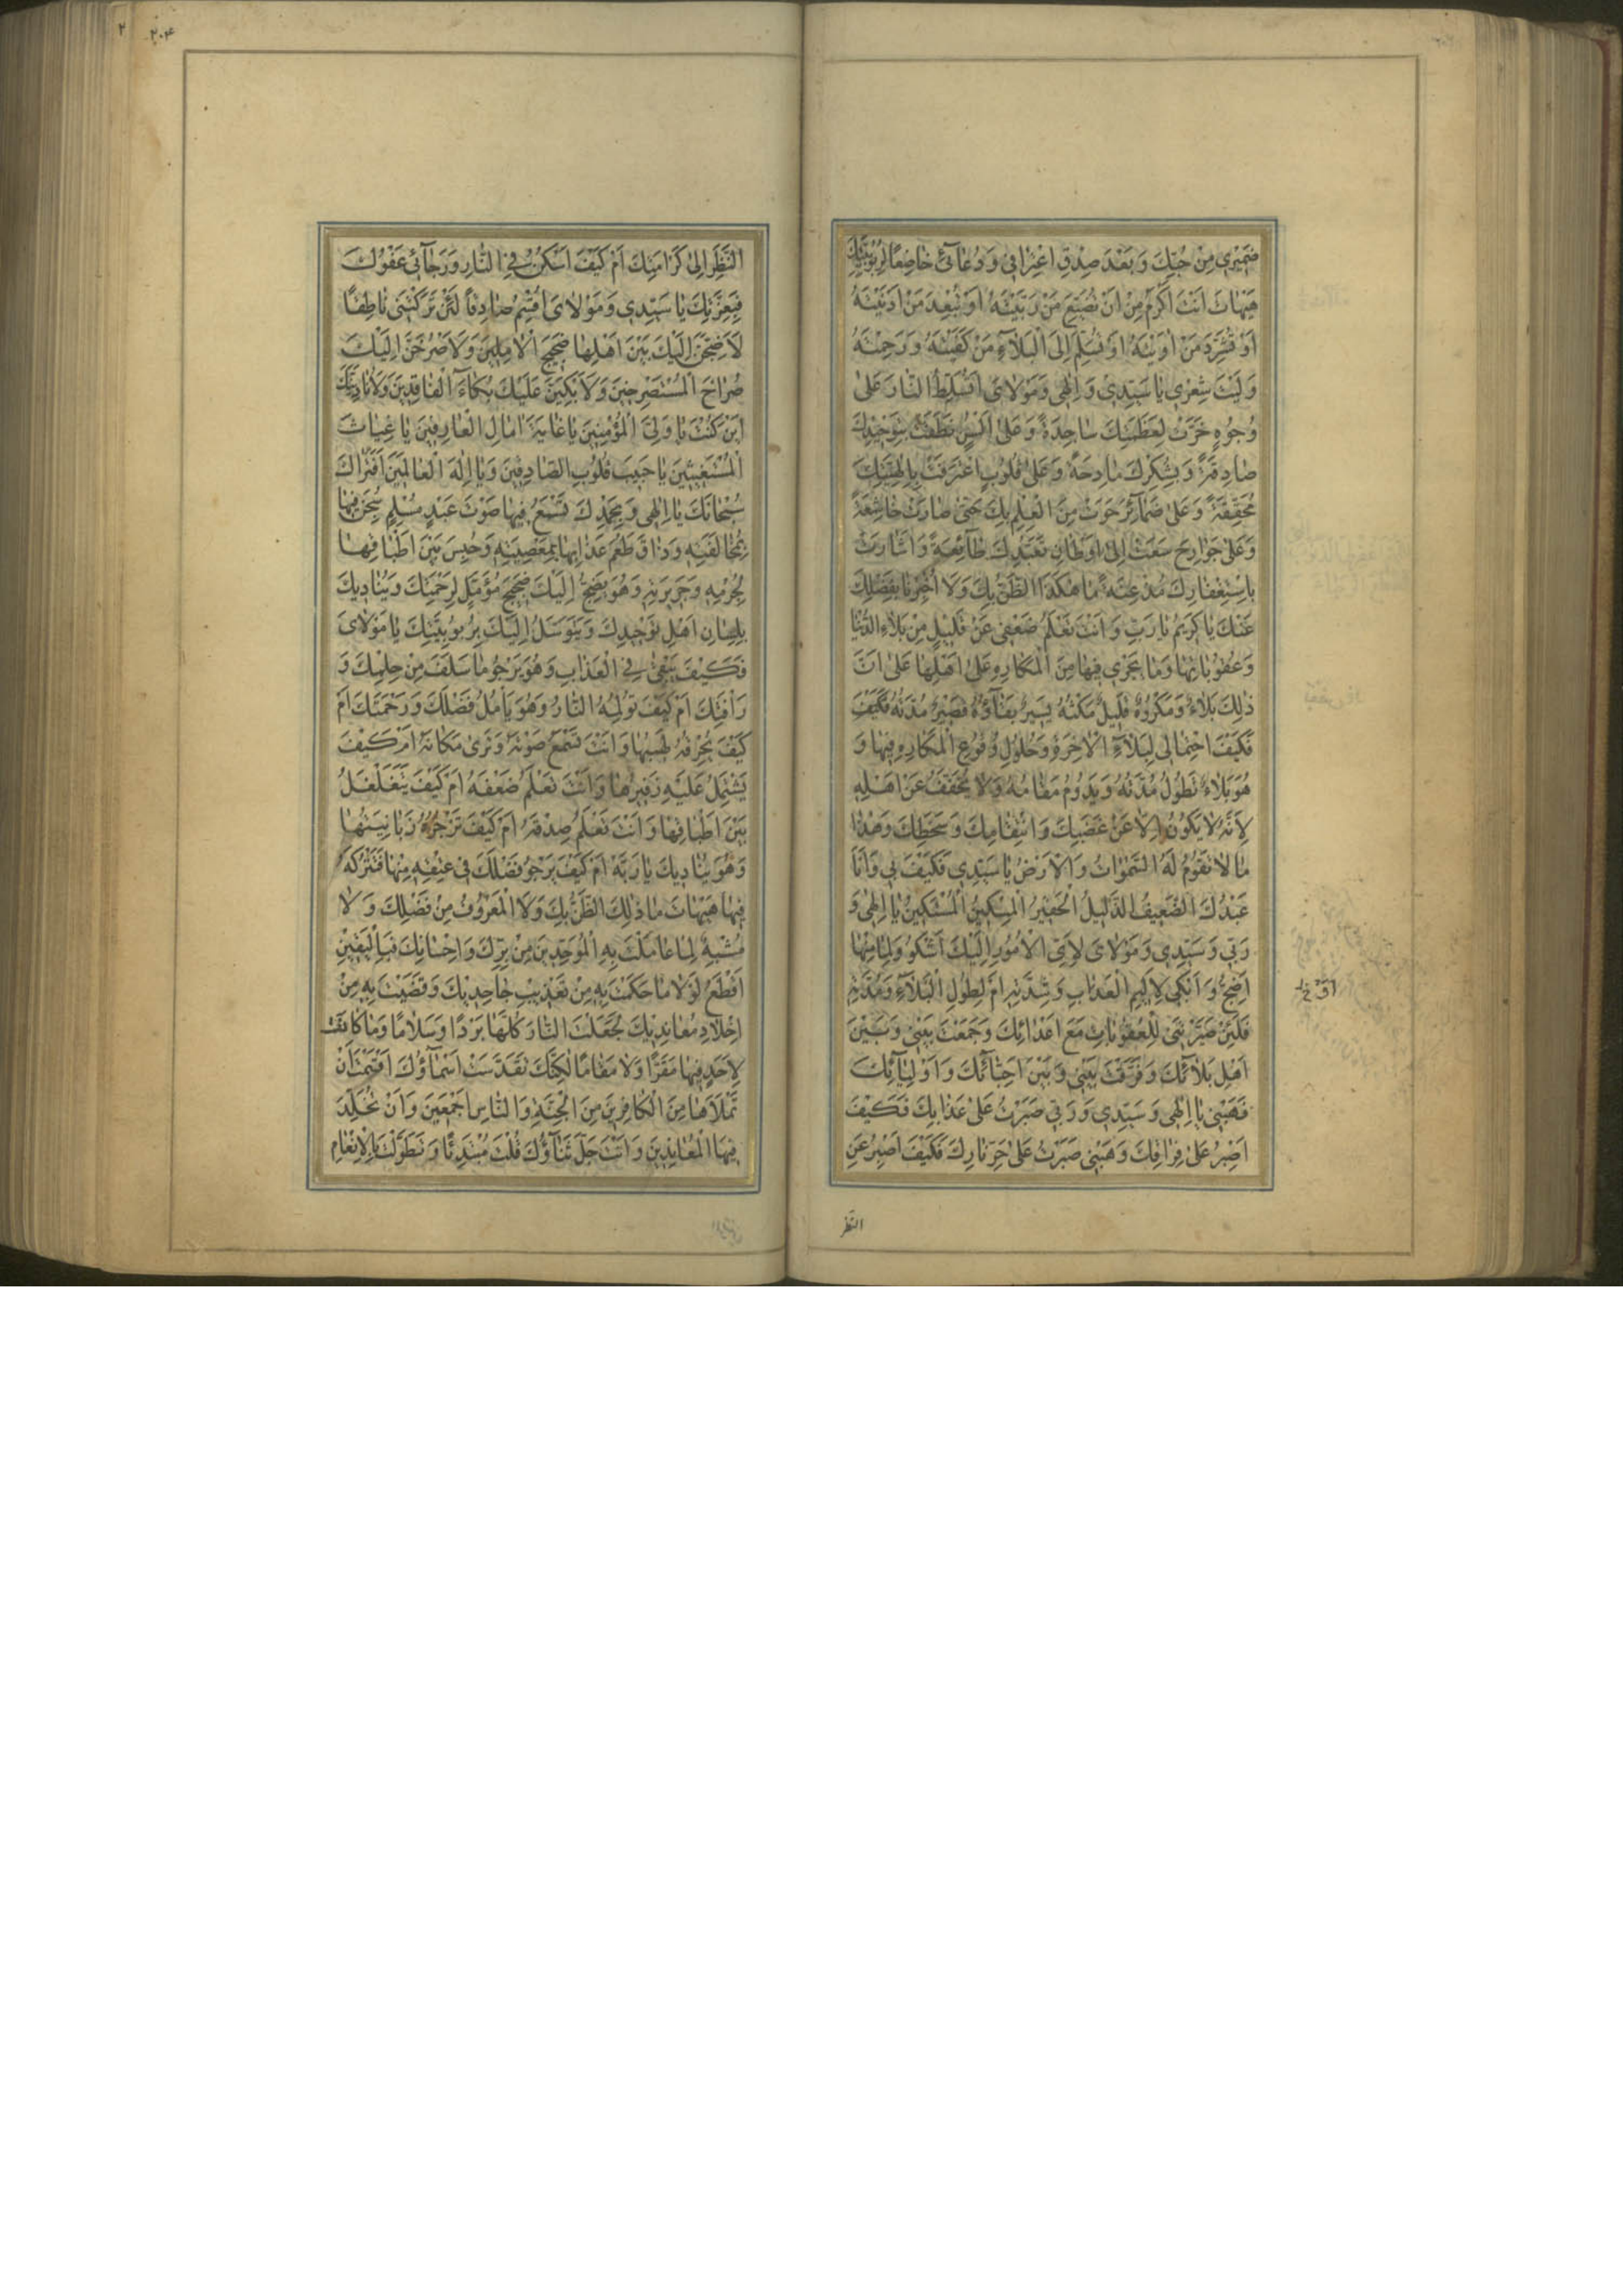 ضَمیری مِنْ حُبِّكَ وَ بَعْدَ صِدْقِ اعْتِرافی وَ دُعآئی خاضِعًا لِرُبُوبِیَّتِكَ
هَیْهاتَ اَنْتَ اَكْرَمُ مِنْ اَنْ تُضَیِّعَ مَنْ رَبَّیْتَهُ اَوْ تُبْعِدَ مَنْ اَدْنَیْتَهُ
اَوْ تُشَرِّدَ مَنْ اوَیْتَهُ اَوْ تُسَلِّمَ اِلَی الْبَلآءِ مَنْ كَفَیْتَهُ وَ رَحِمْتَهُ
وَ لَیْتَ شِعْری یا سَیِّدی وَ اِلهی وَ مَوْلایَ اَتُسَلِّطُ النّارَ عَلی
وُجُوهٍ خَرَّتْ لِعَظَمَتِكَ ساجِدَةً وَ عَلی اَلْسُنٍ نَطَقَتْ بِتَوْحیدِكَ
صادِقَةً وَ بِشُكْرِكَ مادِحَةً وَ عَلی قُلُوبٍ اعْتَرَفَتْ بِاِلهِیَّتِكَ
مُحَقِّقَةً وَ عَلی ضَمآئِرَ حَوَتْ مِنَ الْعِلْمِ بِكَ حَتّی صارَتْ خاشِعَةً
وَ عَلی جَوارِحَ سَعَتْ اِلی اَوْطانِ تَعَبُّدِكَ طآئِعَةً وَ اَشارَتْ
بِاسْتِغْفارِكَ مُذْعِنَةً ما هكَذَا الظَّنُّ بِكَ وَ لا اُخْبِرْنا بِفَضْلِكَ
عَنْكَ یا كَریمُ یا رَبِّ وَ اَنْتَ تَعْلَمُ ضَعْفی عَنْ قَلیلٍ مِنْ بَلاءِ الدُّنْیا
وَ عُقُوباتِها وَ ما یَجْری فیها مِنَ الْمَكارِهِ عَلی اَهْلِها عَلی اَنَّ
ذلِكَ بَلاءٌ وَ مَكْرُوهٌ قَلیلٌ مَكْثُهُ یَسیرٌ بَقآؤُهُ قَصیرٌ مُدَّتُهُ فَكَیْفَ
فَكَیْفَ احْتِمالی لِبَلآءِ الْاخِرَةِ وَ حُلُولِ وُقُوعِ الْمَكارِهِ فیها وَ
هُوَ بَلاءٌ تَطُولُ مُدَّتُهُ وَ یَدُومُ مَقامُهُ وَ لا یُخَفَّفُ عَنْ اَهْلِهِ
لِاَنَّهُ لا یَكُونُ اِلّا عَنْ غَضَبِكَ وَ انْتِقامِكَ وَ سَخَطِكَ وَ هذا
ما لا تَقُومُ لَهُ السَّمواتُ وَ الْاَرْضُ یا سَیِّدی فَكَیْفَ بی وَ اَنَا
عَبْدُكَ الضَّعیفُ الذَّلیلُ الْحَقیرُ الْمِسْكینُ الْمُسْتَكینُ یا اِلهی وَ
رَبّی وَ سَیِّدی وَ مَوْلایَ لِاَیِّ الْاُمُورِ اِلَیْكَ اَشْكُو وَ لِما مِنْها
اَضِجُّ وَ اَبْكی لِاَلیمِ الْعَذابِ وَ شِدَّتِهِ اَمْ لِطُولِ الْبَلآءِ وَ مُدَّتِهِ
فَلَئِنْ صَیَّرْتَنی لِلْعُقُوباتِ مَعَ اَعْدائِكَ وَ جَمَعْتَ بَیْنی وَ بَیْنَ
اَهْلِ بَلآئِكَ وَ فَرَّقْتَ بَیْنی وَ بَیْنَ اَحِبّآئِكَ وَ اَوْلِیآئِكَ
فَهَبْنی یا اِلهی وَ سَیِّدی وَ رَبّی صَبَرْتُ عَلی عَذابِكَ فَكَیْفَ
اَصْبِرُ عَلی فِراقِكَ وَ هَبْنی صَبَرْتُ عَلی حَرِّ نارِكَ فَكَیْفَ اَصْبِرُ عَنِ
النَّظَر
٢٠٤
٢
النَّظَرِ اِلی كَرامَتِكَ اَمْ كَیْفَ اَسْكُنُ فِی النّارِ وَ رَجآئی عَفْوُكَ
فَبِعِزَّتِكَ یا سَیِّدی وَ مَوْلایَ اُقْسِمُ صادِقًا لَئِنْ تَرَكْتَنی ناطِقًا
لَاَضِجَّنَّ اِلَیْكَ بَیْنَ اَهْلِها ضَجیجَ الْامِلینَ وَ لَاَصْرُخَنَّ اِلَیْكَ
صُراخَ الْمُسْتَصْرِخینَ وَ لَاَبْكِیَنَّ عَلَیْكَ بُكآءَ الْفاقِدینَ وَ لَاُنادِیَنَّكَ
اَیْنَ كُنْتَ یا وَلِیَّ الْمُؤْمِنینَ یا غایَةَ امالِ الْعارِفینَ یا غِیاثَ
الْمُسْتَغیثینَ یا حَبیبَ قُلُوبِ الصّادِقینَ وَ یا اِلهَ الْعالَمینَ اَفَتُراكَ
سُبْحانَكَ یا اِلهی وَ بِحَمْدِكَ تَسْمَعُ فیها صَوْتَ عَبْدٍ مُسْلِمٍ سُجِنَ فیها
بِمُخالَفَتِهِ وَ ذاقَ طَعْمَ عَذابِها بِمَعْصِیَتِهِ وَ حُبِسَ بَیْنَ اَطْباقِها
بِجُرْمِهِ وَ جَریرَتِهِ وَ هُوَ یَضِجُّ اِلَیْكَ ضَجیجَ مُؤَمِّلٍ لِرَحْمَتِكَ وَ یُنادیكَ
بِلِسانِ اَهْلِ تَوْحیدِكَ وَ یَتَوَسَّلُ اِلَیْكَ بِرُبُوبِیَّتِكَ یا مَوْلایَ
فَكَیْفَ یَبْقی فِی الْعَذابِ وَ هُوَ یَرْجُو ما سَلَفَ مِنْ حِلْمِكَ وَ
رَاْفَتِكَ اَمْ كَیْفَ تُولِمُهُ النّارُ وَ هُوَ یَاْمُلُ فَضْلَكَ وَ رَحْمَتَكَ اَمْ
كَیْفَ یُحْرِقُهُ لَهیبُها وَ اَنْتَ تَسْمَعُ صَوْتَهُ وَ تَری مَكانَهُ اَمْ كَیْفَ
یَشْتَمِلُ عَلَیْهِ زَفیرُها وَ اَنْتَ تَعْلَمُ ضَعْفَهُ اَمْ كَیْفَ یَتَغَلْغَلُ
بَیْنَ اَطْباقِها وَ اَنْتَ تَعْلَمُ صِدْقَهُ اَمْ كَیْفَ تَزْجُرُهُ زَبانِیَتُها
وَ هُوَ یُنادیكَ یا رَبَّهْ اَمْ كَیْفَ یَرْجُو فَضْلَكَ فی عِتْقِهِ مِنْها فَتَتْرُكَهُ
فیها هَیْهاتَ ما ذلِكَ الظَّنُّ بِكَ وَ لَا الْمَعْرُوفُ مِنْ فَضْلِكَ وَ لا
مُشْبِهٌ لِما عامَلْتَ بِهِ الْمُوَحِّدینَ مِنْ بِرِّكَ وَ اِحْسانِكَ فَبِالْیَقینِ
اَقْطَعُ لَوْلا ما حَكَمْتَ بِهِ مِنْ تَعْذیبِ جاحِدیكَ وَ قَضَیْتَ بِهِ مِنْ
اِخْلادِ مُعانِدیكَ لَجَعَلْتَ النّارَ كُلَّها بَرْدًا وَ سَلامًا وَ ما كانَتْ
لِاَحَدٍ فیها مَقَرًّا وَ لا مَقامًا لكِنَّكَ تَقَدَّسَتْ اَسْمآؤُكَ اَقْسَمْتَ اَنْ
تَمْلَاَها مِنَ الْكافِرینَ مِنَ الْجِنَّةِ وَ النّاسِ اَجْمَعینَ وَ اَنْ تُخَلِّدَ
فیهَا الْمُعانِدینَ وَ اَنْتَ جَلَّ ثَنآؤُكَ قُلْتَ مُبْتَدِئًا وَ تَطَوَّلْتَ بِالْاِنْعامِ